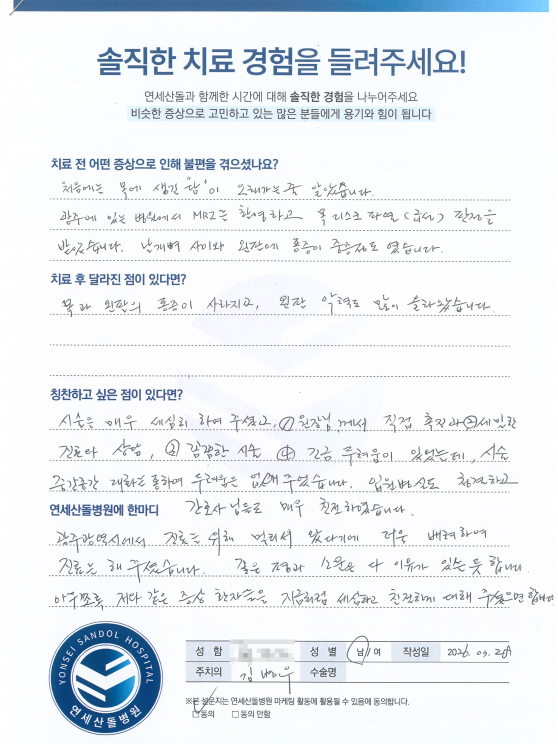 솔직한 치료 경험을 들려주세요!
연세산돌과 함께한 시간에 대해 솔직한 경험을 나누어주세요
비슷한 증상으로 고민하고 있는 많은 분들에게 용기와 힘이 됩니다
치료 전 어떤 증상으로 인해 불편을 겪으셨나요?
처음에는 목에 생긴 "담"이 오래가는줄 알았습니다.
광주에 있는 병원에서 MRI는 촬영하고 목 디스크 파열(급성) 판정을
받았습니다. 날개뼈 사이와 왼팔에 통증이 중증정도 였습니다.
치료 후 달라진 점이 있다면?
목과 왼팔의 통증이 사라지고, 왼팔 악력도 많이 올라왔습니다.
칭찬하고 싶은 점이 있다면?
시술은 매우 세심히 하여 주셨고, ① 원장님께서 직접 촉진과 ② 세밀한
진료와 상담, ③ 꼼꼼한 시술 ④ 긴급 두려움이 있었는데, 시술
중간중간 대화를 통하여 두려움은 없애 주었습니다. 입원병실도 청결하고
간호사님들도 매우 친절하였습니다.
연세산돌병원에 한마디
광주광역시에서 진료를 위해 멀리서 왔다기에 더욱 배려하며
진료를 해 주셨습니다. 좋은 평과 소문은 다 이유가 있는 듯 합니다.
아무쪼록 저와 같은 증상 환자들을 지금처럼 세심하고 친절하게 대해 주셨으면 합니다
YONSEI SANDOL HOSPITAL
연세산돌병원
성 함 성 별 남/여 작성일 2026. 03. 28
주치의 김병우 수술명
※본 설문지는 연세산돌병원 마케팅 활동에 활용될 수 있음에 동의합니다.
☑동의 □동의 안함